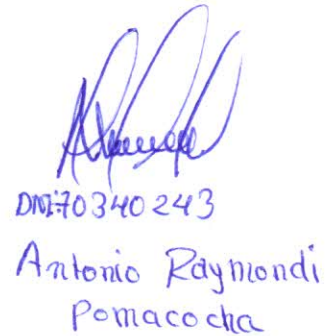 DNI:70340243
Antonio Raymondi
Pomacocha